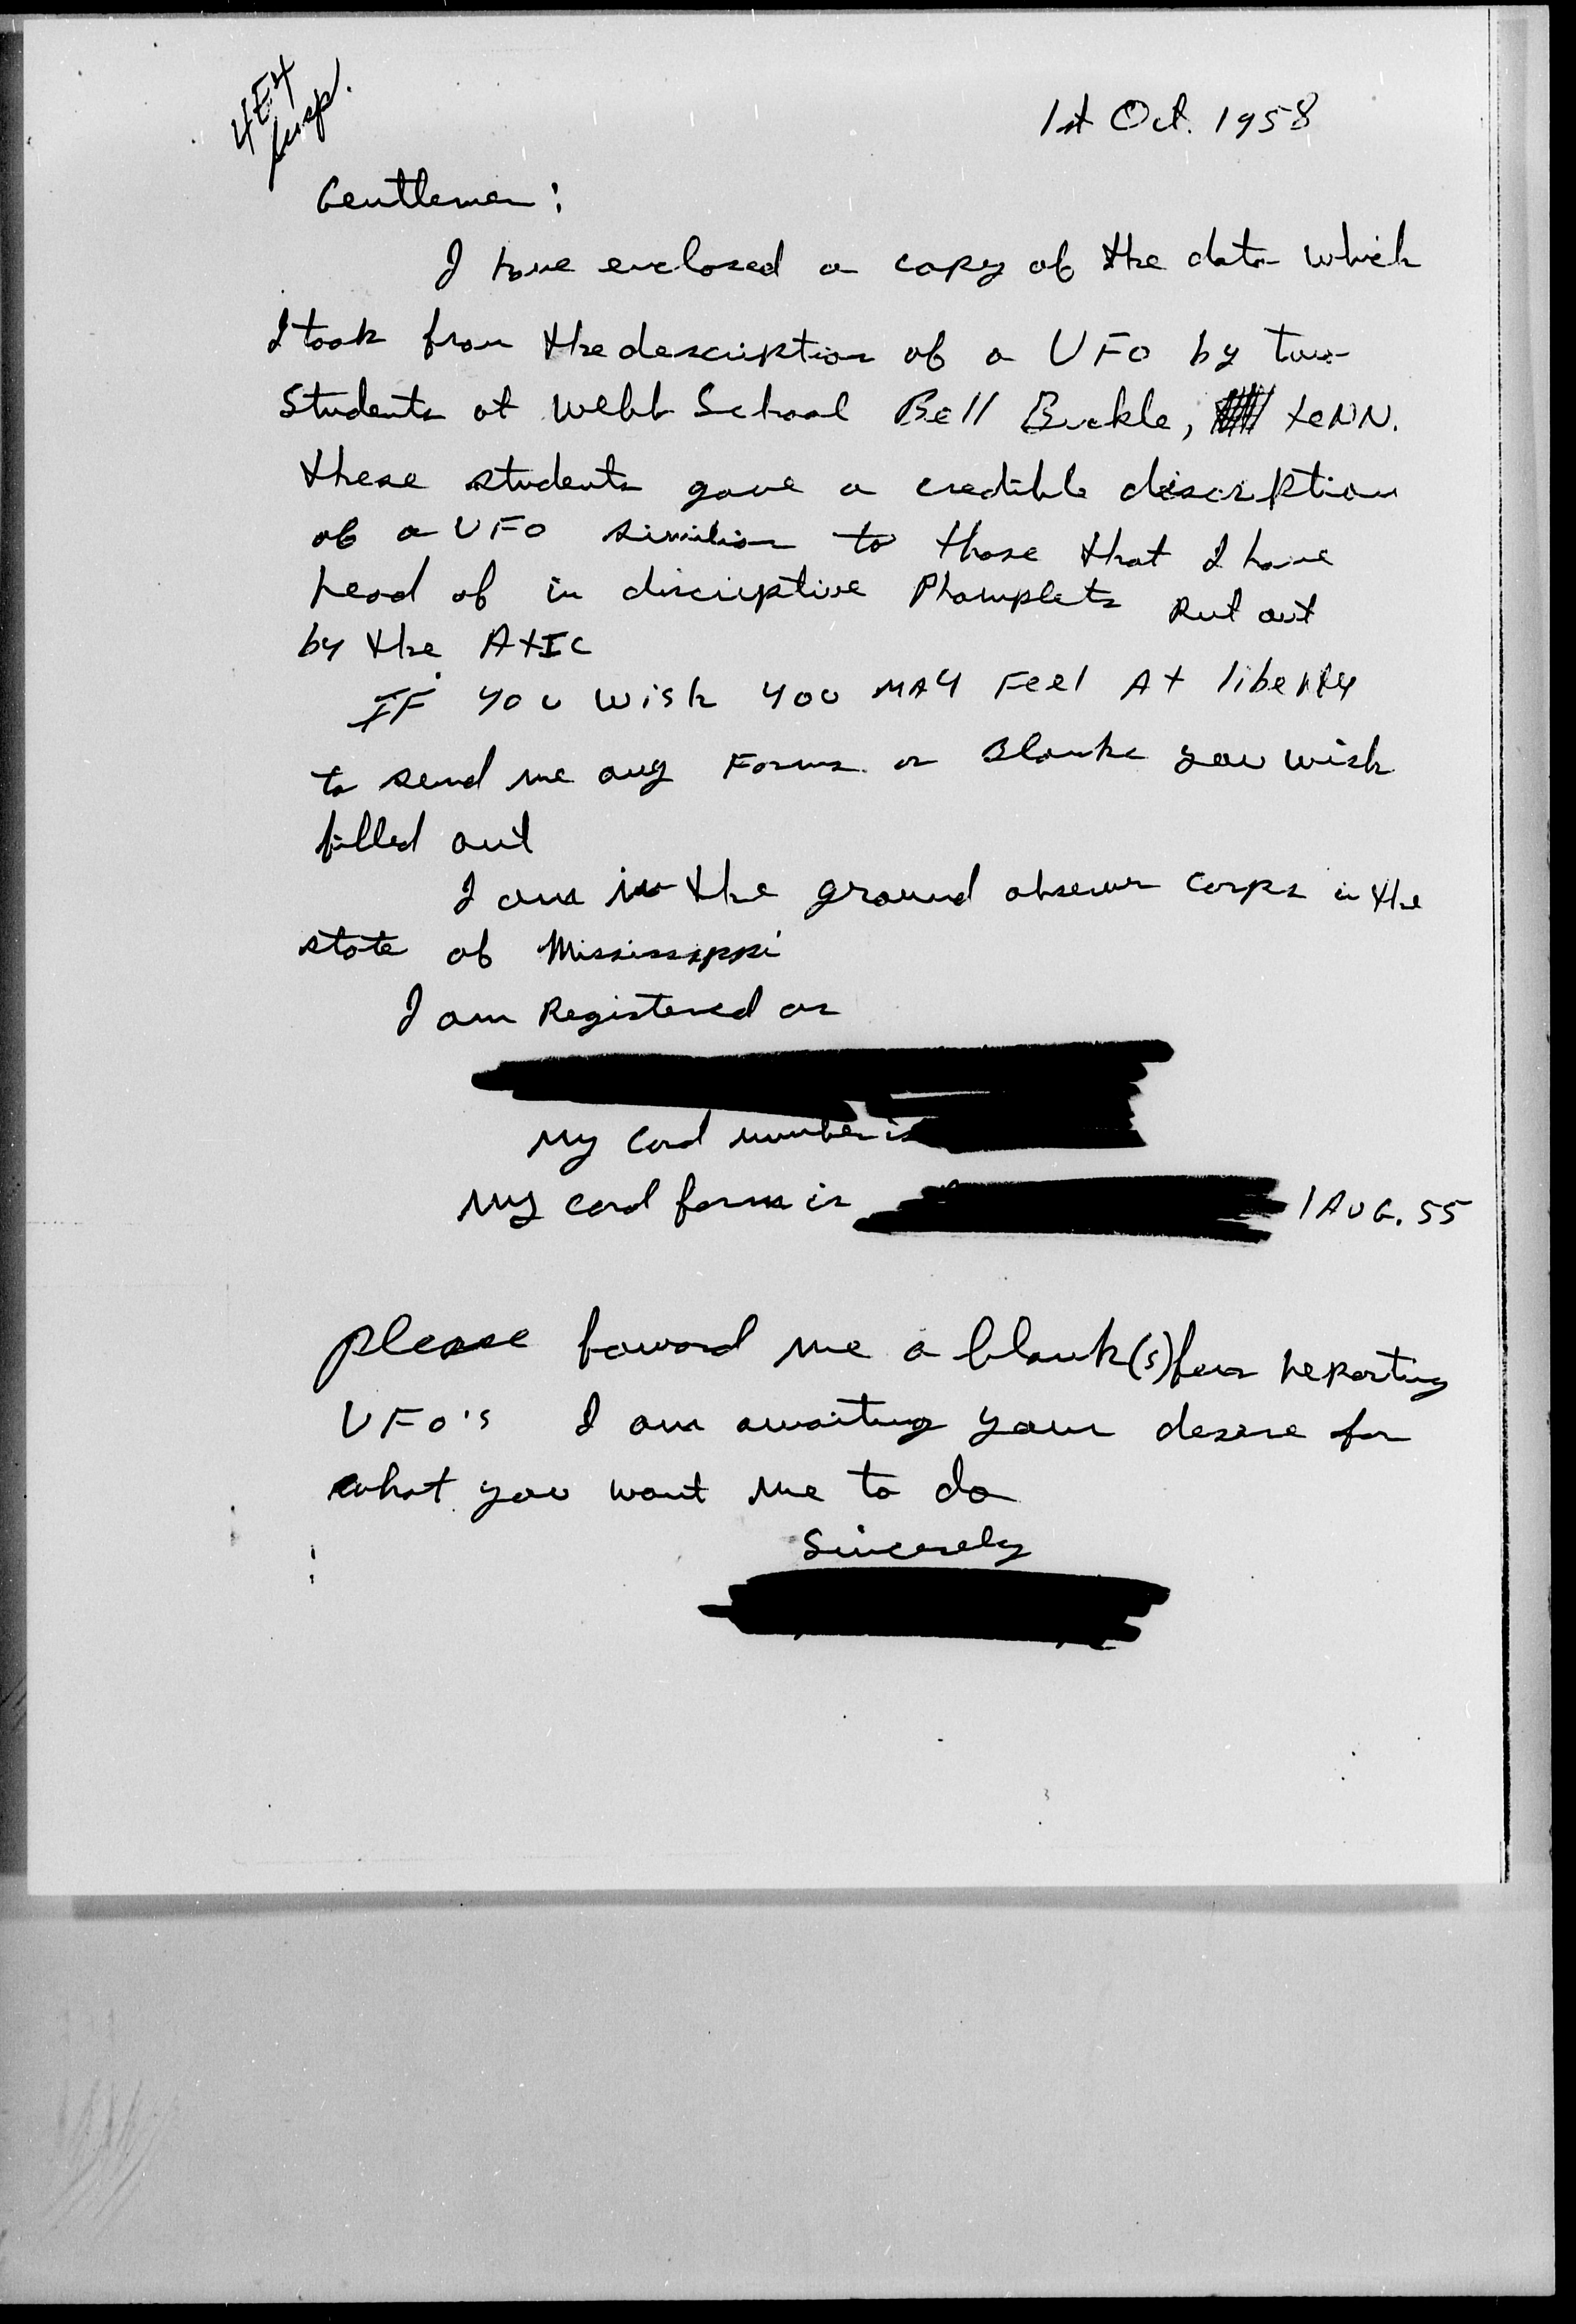 4E4
Susp.
1st Oct. 1958
Gentlemen:
I have enclosed a copy of the data which
I took from the description of a UFO by two
Students at Webb School Bell Buckle, tENN.
these students gave a credible discription
of a UFO similiar to those that I have
head of in discriptive Phamplets Put out
by the AtIC
IF you wish you MAY FEEl At liberty
to send me any Forms or Blanks you wish
filled out
I am in the ground observer corps in the
state of Mississippi
I am Registered as
My Card number is
My card form is 1 AUG. 55
please foward me a blank(s) for reporting
UFO's I am awaiting your desire for
what you want me to do
Sincerely